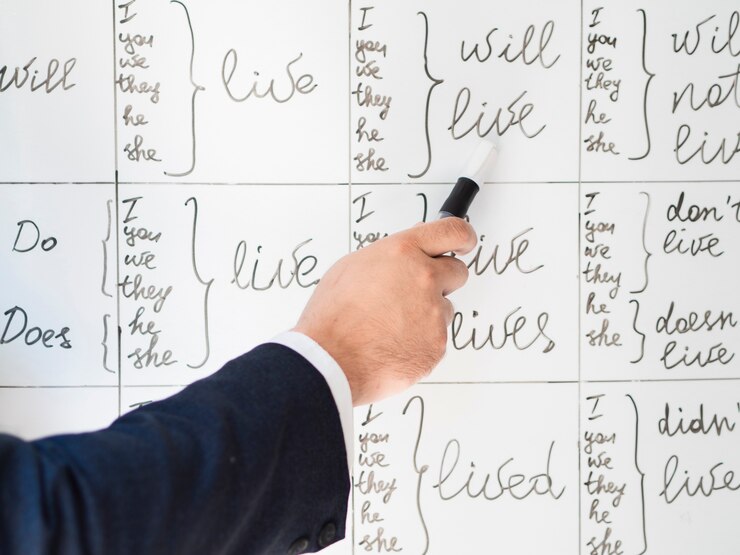 will
I
you
we
they
he
she
live
I
you
we
they
he
she
will
live
I
you
we
they
he
she
will
not
live
Do
Does
I
you
we
they
he
she
live
I
you
live
lives
I
you
we
they
he
she
don't
live
doesn
live
I
you
we
they
he
she
lived
I
you
we
they
he
she
didn'
live